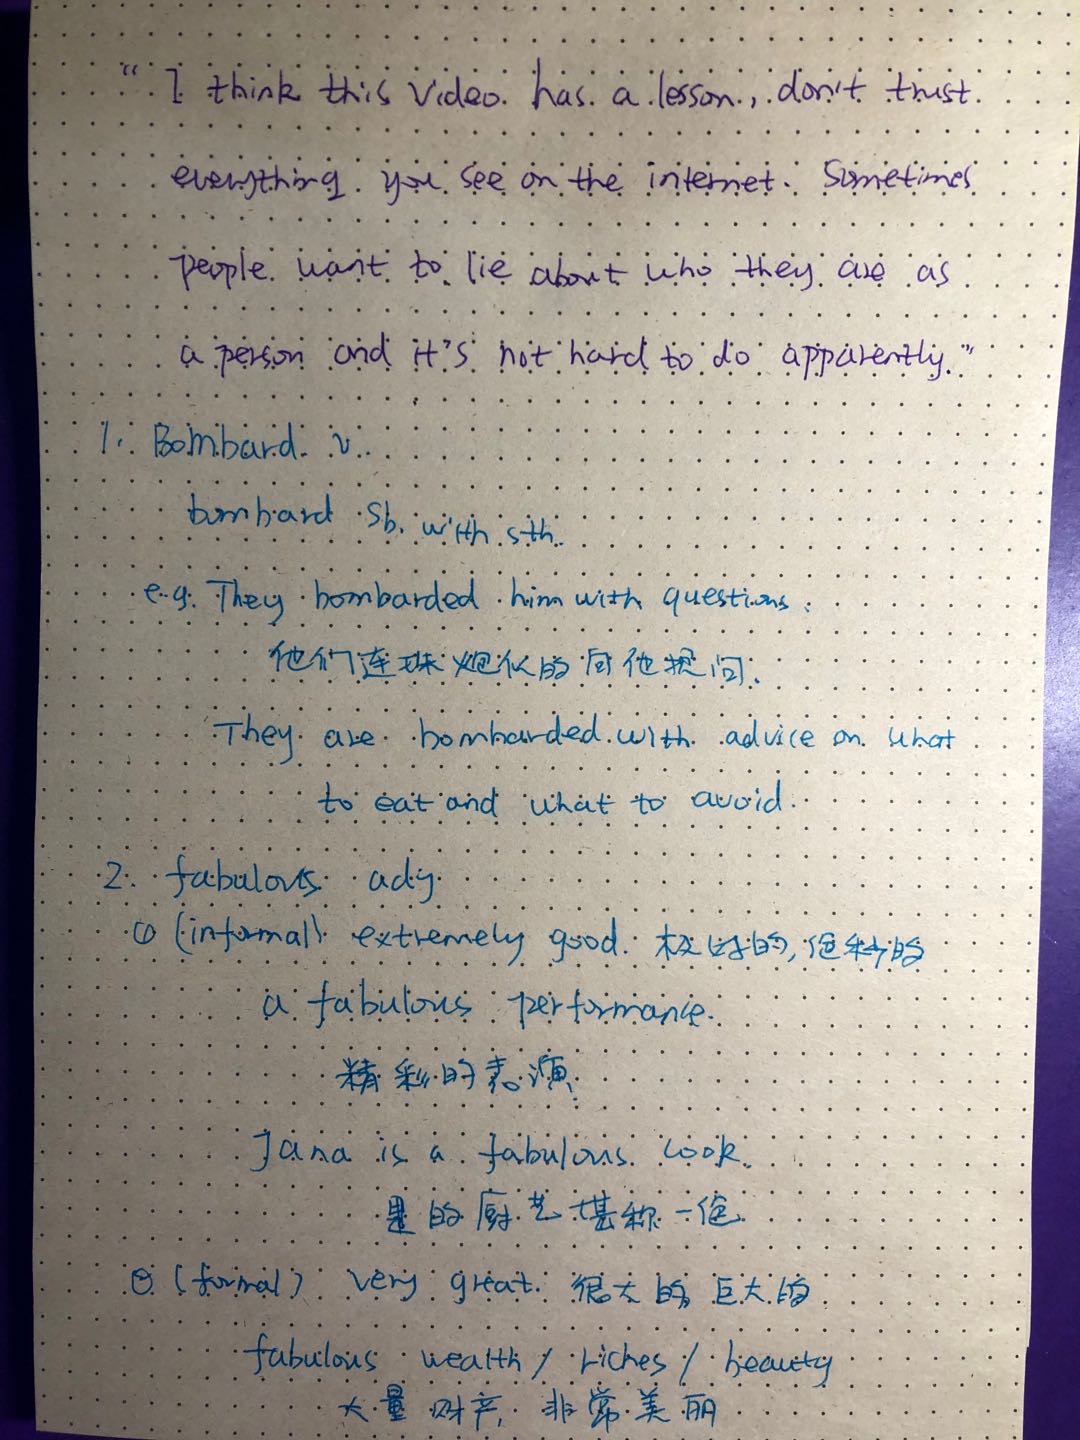 “I think this video has a lesson, don't trust
everything you see on the internet. Sometimes
people want to lie about who they are as
a person and it's not hard to do apparently.”
1. Bombard v.
bombard sb. with sth.
e.g. They bombarded him with questions.
他们连珠炮似的向他提问.
They are bombarded with advice on what
to eat and what to avoid.
2. fabulous adj
① (informal) extremely good. 极好的, 绝彩的
a fabulous performance.
精彩的表演.
Jana is a fabulous cook.
的厨艺堪称一绝
② (formal) very great. 很大的 巨大的
fabulous wealth / riches / beauty
大量财产, 非常美丽